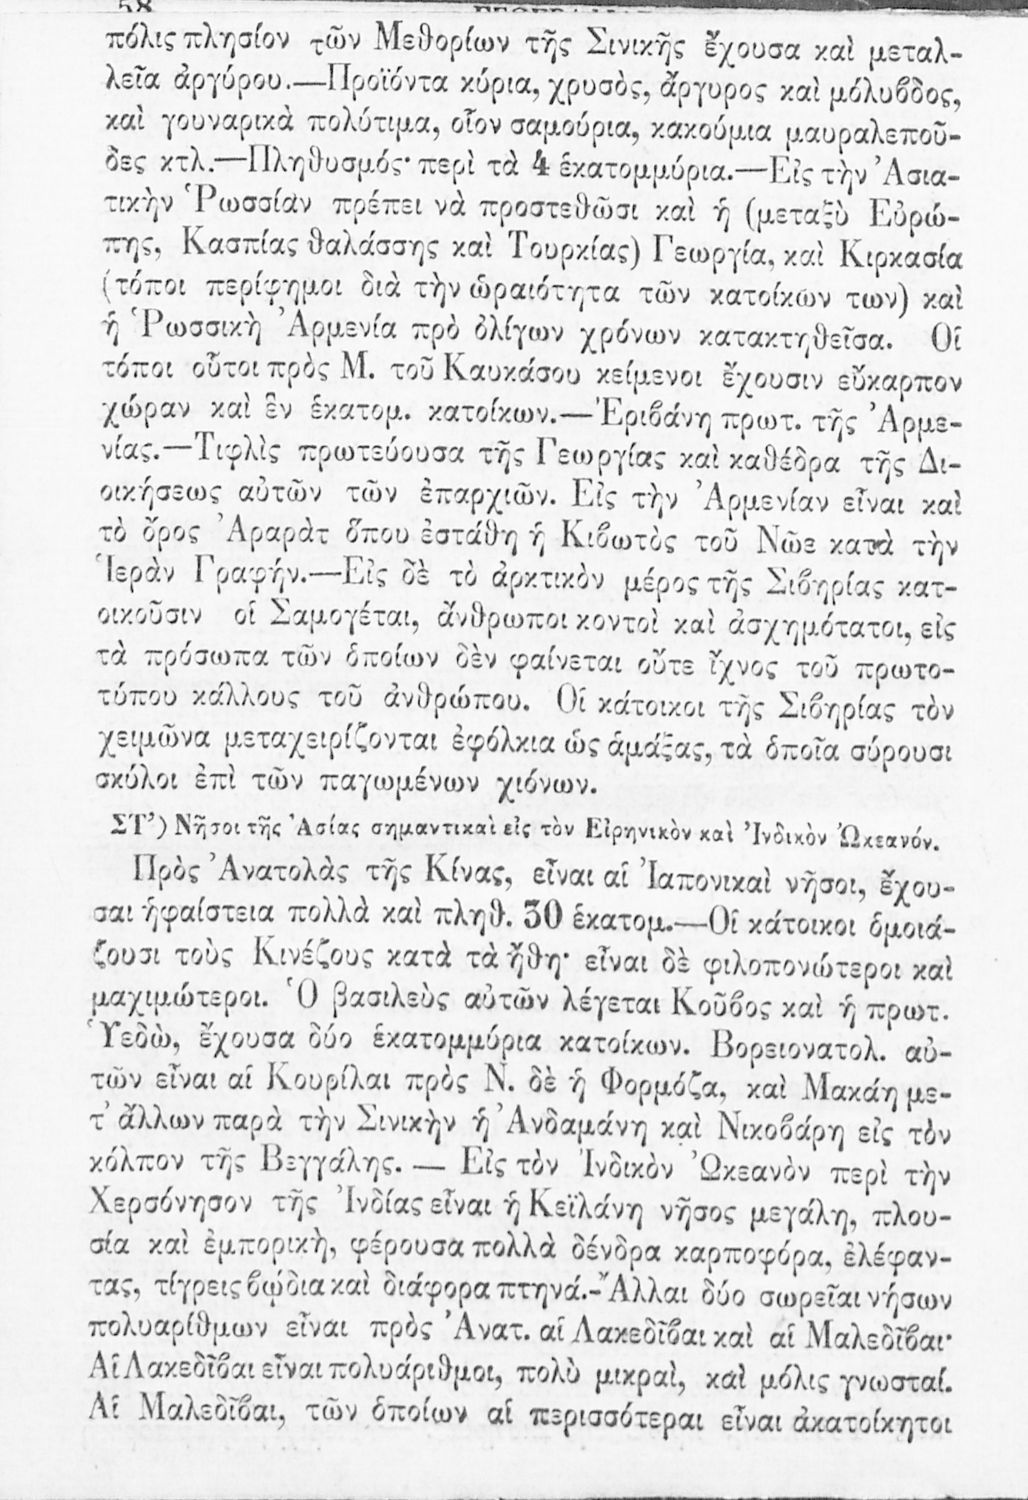 58
πόλις πλησίον τῶν Μεθορίων τῆς Σινικῆς ἔχουσα καὶ μεταλ-
λεῖα ἀργύρου.—Προϊόντα κύρια, χρυσὸς, ἄργυρος καὶ μόλυβδος,
καὶ γουναρικὰ πολύτιμα, οἷον σαμούρια, κακούμια μαυραλεποῦ-
δες κτλ.—Πληθυσμός· περὶ τὰ 4 ἑκατομμύρια.—Εἰς τὴν Ἀσια-
τικὴν Ῥωσσίαν πρέπει νὰ προστεθῶσι καὶ ἡ (μεταξὺ Εὐρώ-
πης, Κασπίας θαλάσσης καὶ Τουρκίας) Γεωργία, καὶ Κιρκασία
(τόποι περίφημοι διὰ τὴν ὡραιότητα τῶν κατοίκων των) καὶ
ἡ Ῥωσσικὴ Ἀρμενία πρὸ ὀλίγων χρόνων κατακτηθεῖσα. Οἱ
τόποι οὗτοι πρὸς Μ. τοῦ Καυκάσου κείμενοι ἔχουσιν εὔκαρπον
χώραν καὶ ἓν ἑκατομ. κατοίκων.—Ἐριβάνη πρωτ. τῆς Ἀρμε-
νίας.—Τιφλὶς πρωτεύουσα τῆς Γεωργίας καὶ καθέδρα τῆς Δι-
οικήσεως αὐτῶν τῶν ἐπαρχιῶν. Εἰς τὴν Ἀρμενίαν εἶναι καὶ
τὸ ὄρος Ἀραρὰτ ὅπου ἐστάθη ἡ Κιβωτὸς τοῦ Νῶε κατὰ τὴν
Ἱερὰν Γραφήν.—Εἰς δὲ τὸ ἀρκτικὸν μέρος τῆς Σιβηρίας κατ-
οικοῦσιν οἱ Σαμογέται, ἄνθρωποι κοντοὶ καὶ ἀσχημότατοι, εἰς
τὰ πρόσωπα τῶν ὁποίων δὲν φαίνεται οὔτε ἴχνος τοῦ πρωτο-
τύπου κάλλους τοῦ ἀνθρώπου. Οἱ κάτοικοι τῆς Σιβηρίας τὸν
χειμῶνα μεταχειρίζονται ἐφόλκια ὡς ἁμάξας, τὰ ὁποῖα σύρουσι
σκύλοι ἐπὶ τῶν παγωμένων χιόνων.
ΣΤ’) Νῆσοι τῆς Ἀσίας σημαντικαὶ εἰς τὸν Εἰρηνικὸν καὶ Ἰνδικὸν Ὠκεανόν.
Πρὸς Ἀνατολὰς τῆς Κίνας, εἶναι αἱ Ἰαπονικαὶ νῆσοι, ἔχου-
σαι ἡφαίστεια πολλὰ καὶ πληθ. 30 ἑκατομ.—Οἱ κάτοικοι ὁμοιά-
ζουσι τοὺς Κινέζους κατὰ τὰ ἤθη· εἶναι δὲ φιλοπονώτεροι καὶ
μαχιμώτεροι. Ὁ βασιλεὺς αὐτῶν λέγεται Κοῦβος καὶ ἡ πρωτ.
Ὑεδὼ, ἔχουσα δύο ἑκατομμύρια κατοίκων. Βορειονατολ. αὐ-
τῶν εἶναι αἱ Κουρίλαι πρὸς Ν. δὲ ἡ Φορμόζα, καὶ Μακάη με-
τ’ ἄλλων παρὰ τὴν Σινικὴν ἡ Ἀνδαμάνη καὶ Νικοβάρη εἰς τὸν
κόλπον τῆς Βεγγάλης. — Εἰς τὸν Ἰνδικὸν Ὠκεανὸν περὶ τὴν
Χερσόνησον τῆς Ἰνδίας εἶναι ἡ Κεϊλάνη νῆσος μεγάλη, πλου-
σία καὶ ἐμπορικὴ, φέρουσα πολλὰ δένδρα καρποφόρα, ἐλέφαν-
τας, τίγρεις βῴδια καὶ διάφορα πτηνά.-Ἄλλαι δύο σωρεῖαι νήσων
πολυαρίθμων εἶναι πρὸς Ἀνατ. αἱ Λακεδῖβαι καὶ αἱ Μαλεδῖβαι·
Αἱ Λακεδῖβαι εἶναι πολυάριθμοι, πολὺ μικραὶ, καὶ μόλις γνωσταί.
Αἱ Μαλεδῖβαι, τῶν ὁποίων αἱ περισσότεραι εἶναι ἀκατοίκητοι